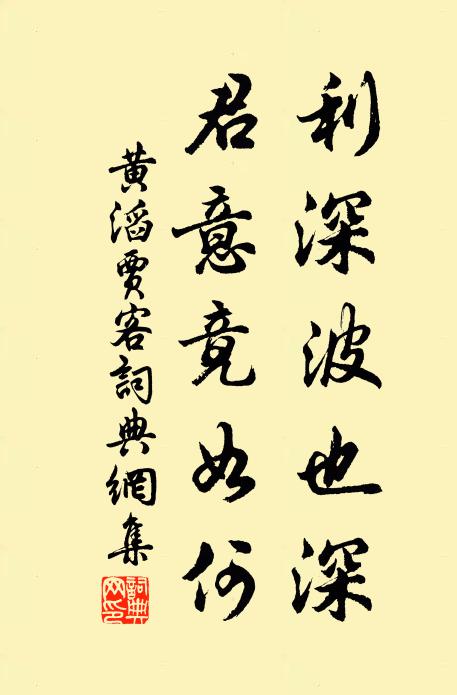 利深波也深
君意竟如何
黃滔賈客詞典網集
詞典網印